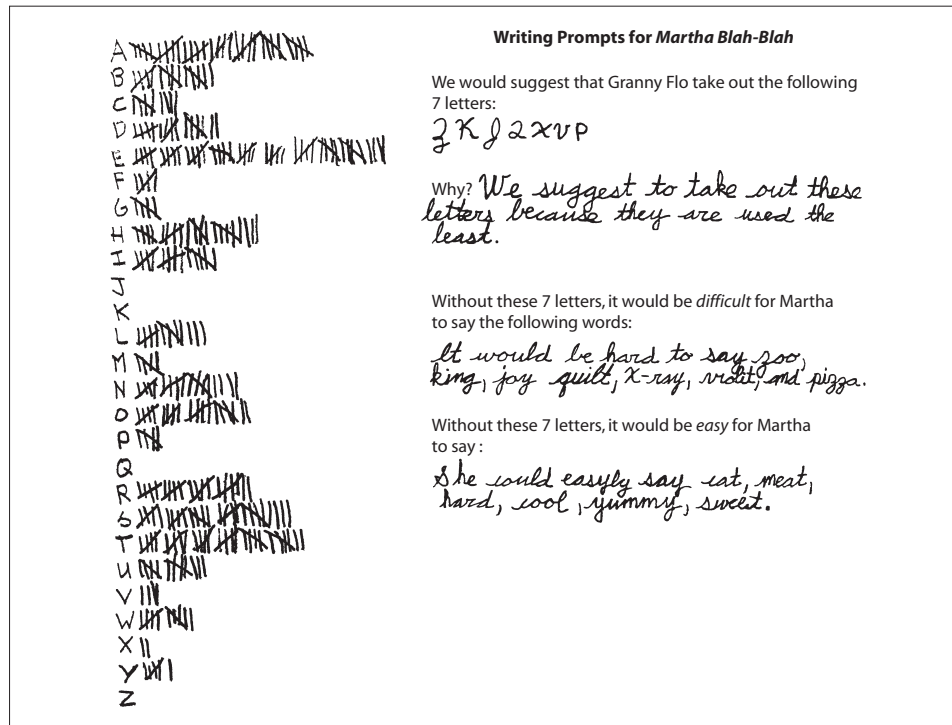 A
B
C
D
E
F
G
H
I
J
K
L
M
N
O
P
Q
R
S
T
U
V
W
X
Y
Z
Writing Prompts for Martha Blah-Blah
We would suggest that Granny Flo take out the following
7 letters:
Z K J Q X V P
Why? We suggest to take out these
letters because they are used the
least.
Without these 7 letters, it would be difficult for Martha
to say the following words:
It would be hard to say zoo,
king, joy quilt, X-ray, violit, and pizza.
Without these 7 letters, it would be easy for Martha
to say :
She could easyly say cat, meat,
hard, cool, yummy, sweet.